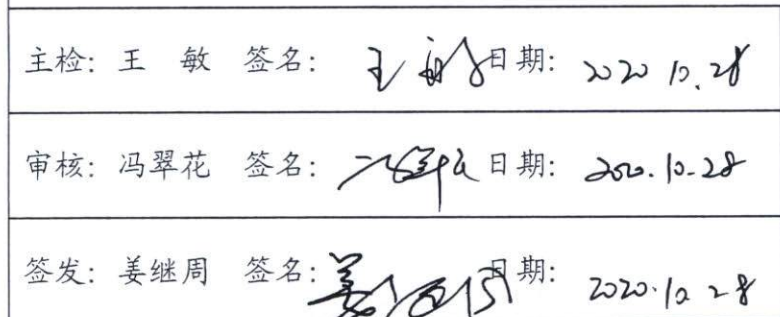 主检：王 敏 签名：王敏 日期：2020 10.28
审核：冯翠花 签名：冯翠花 日期：2020.10-28
签发：姜继周 签名：姜继周 日期：2020.10 28